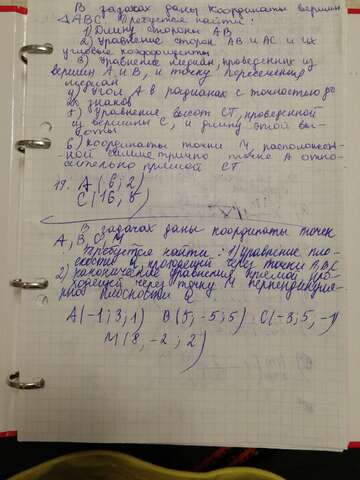 В задачах даны координаты вершин
△ABC. Требуется найти:
1) Длину стороны AB
2) Уравнение сторон AB и AC и их
угловые коэффициенты
3) Уравнение медиан, проведённых из
вершин A и B, и точку пересечения
медиан
4) угол A в радианах с точностью до
2х знаков
5) Уравнение высот CT, проведенной
из вершины C, и длину этой вы-
соты
6) координаты точки M, расположен-
ной симметрично точке A отно-
сительно прямой CT
A(6;2)
C(16,6)
В задачах даны координаты точек
A, B, C, M
Требуется найти: 1) уравнение пло-
скости Q, проходящей через точки A, B, C
2) канонические уравнения прямой про-
ходящей через точку M перпендикуля-
рно плоскости Q
A(-1;3;1) B(5,-5;5) C(-3;5,-1)
M(8,-2;2)